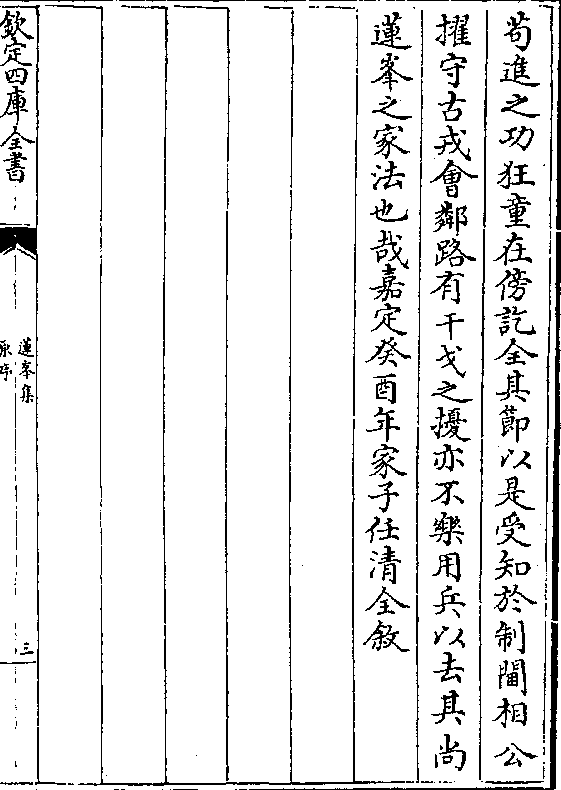 苟進之功狂童在傍訖全其節以是受知於制閫相公
擢守古戎會鄰路有干戈之擾亦不樂用兵以去其尚
蓮峯之家法也哉嘉定癸酉年家子任清全敘
欽定四庫全書
蓮峯集
原序
三